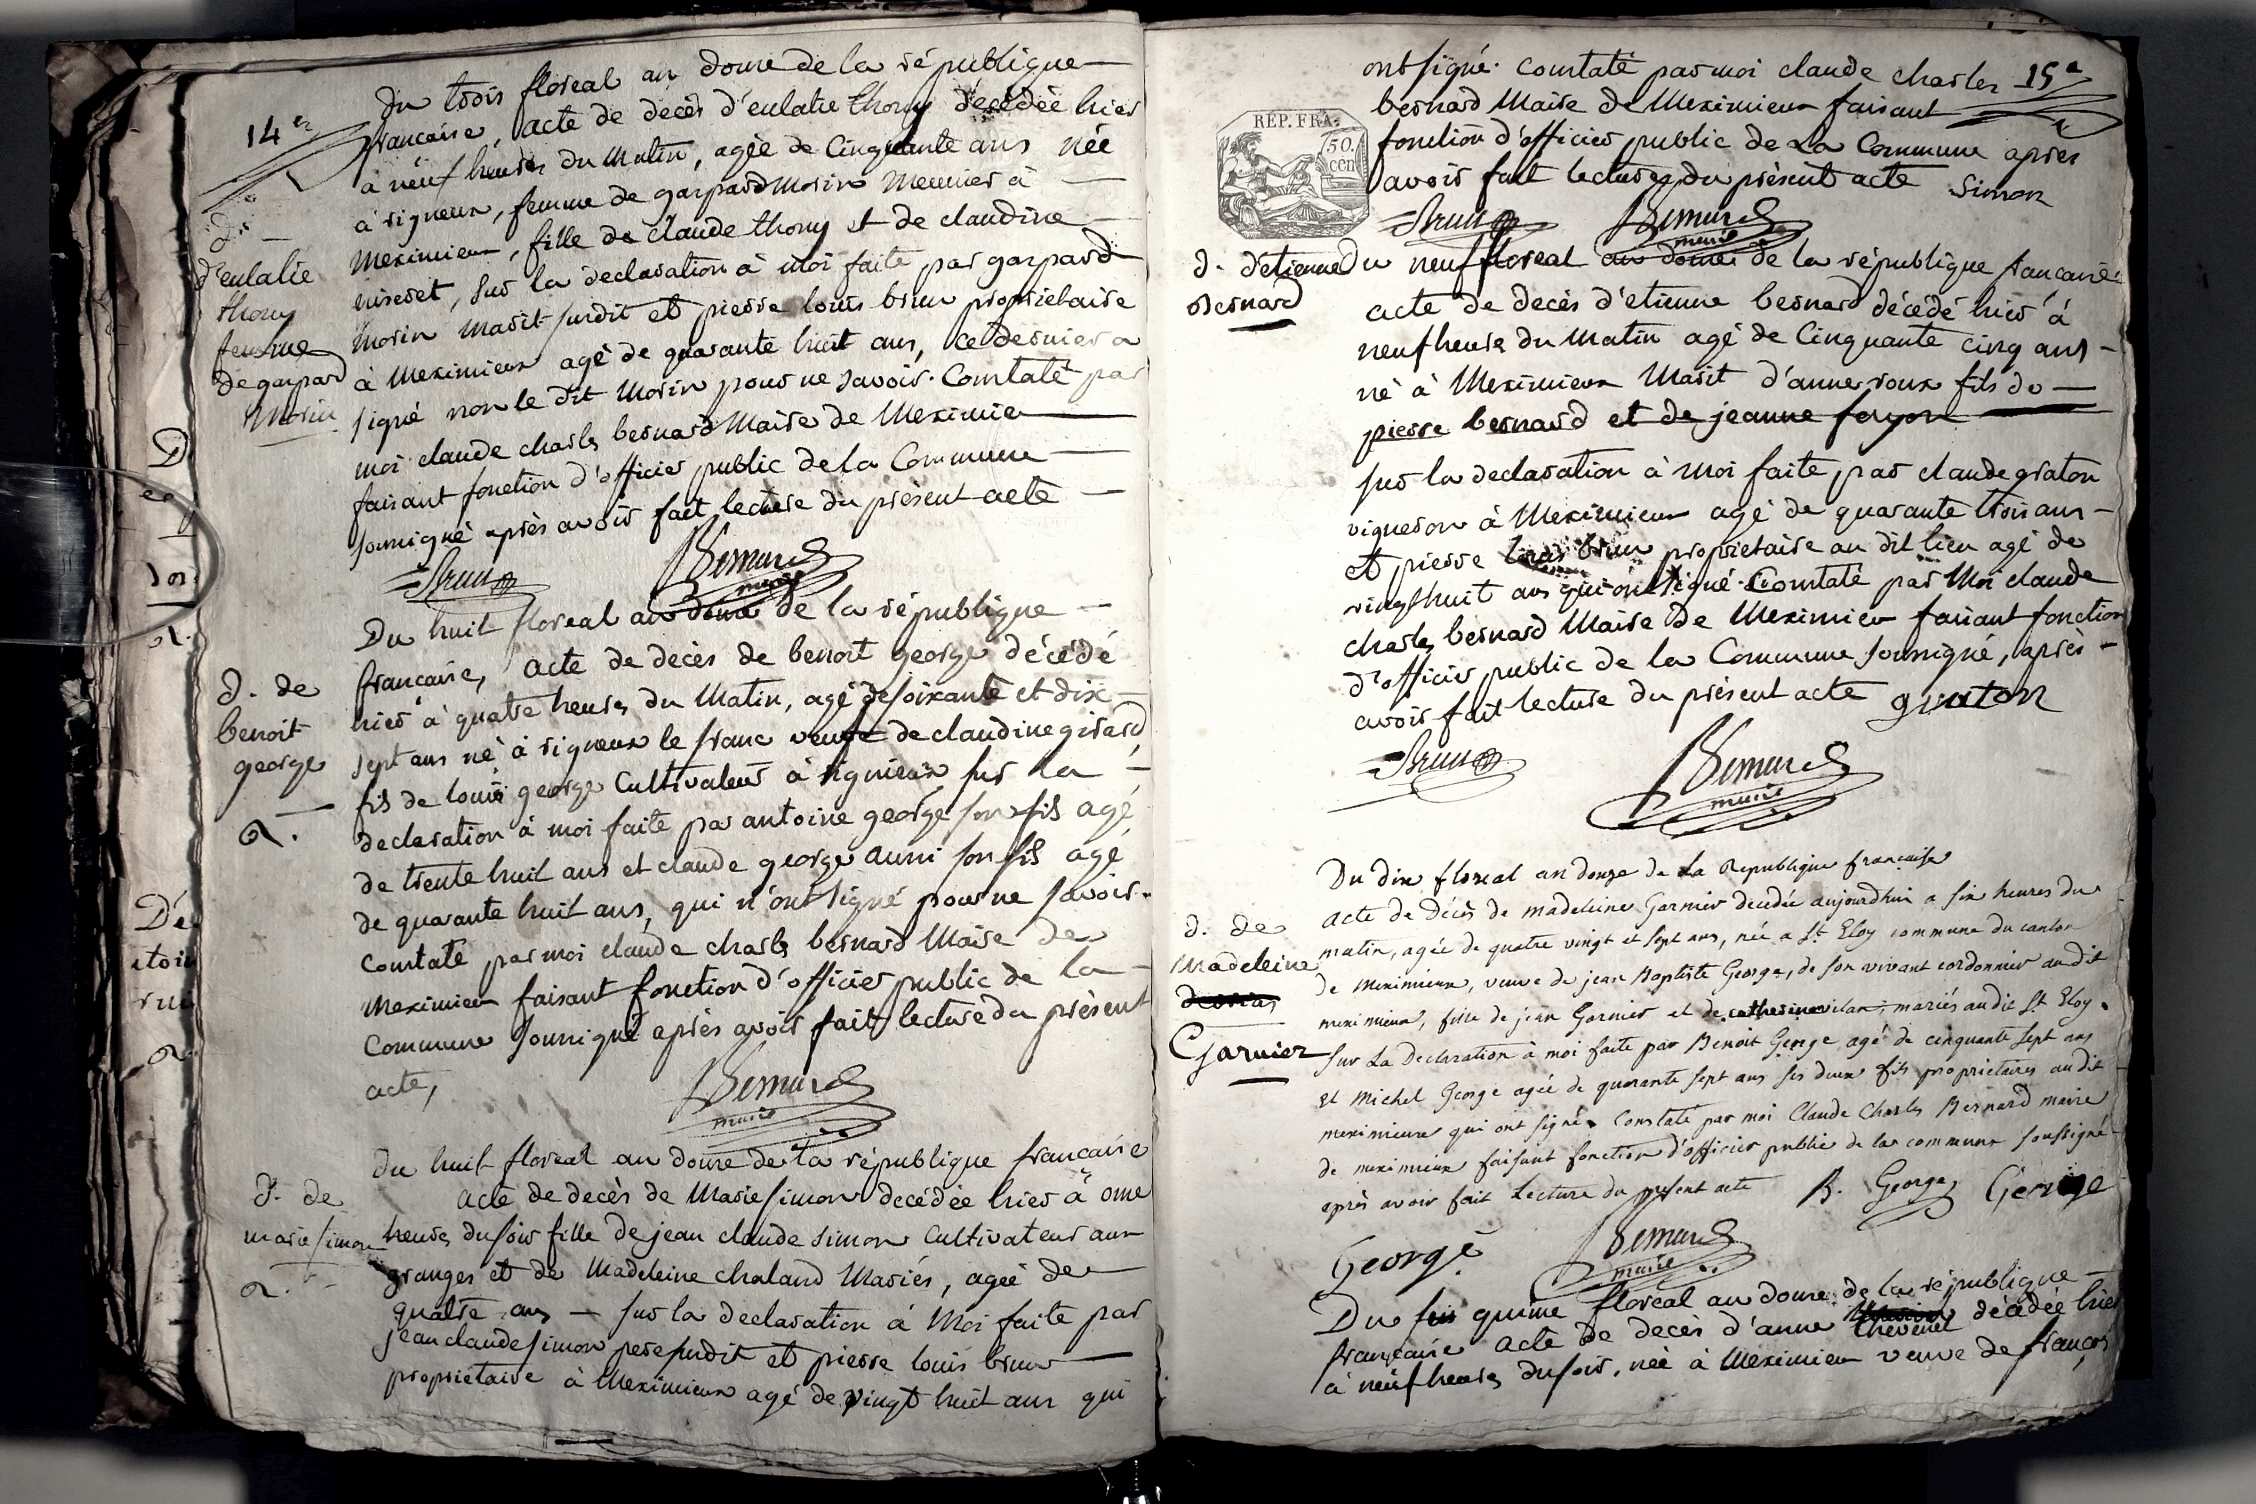 14e
du trois floreal an douze de la république
francaise, acte de decès d'eulalie thony decédée hier
à neuf heures du matin, agée de Cinquante ans née
à rigneux, femme de gaspard morin meunier à
meximieux, fille de claude thony et de claudine
miseret, sur la declaration à moi faite par gaspard
morin marit surdit et pierre louis brun propriétaire
à meximieux agé de quarante huit ans, ce dernier a
signé non le dit morin pour ne savoir. Constaté par
moi claude charles bernard Maire de Meximieu
faisant fonction d'officier public de la Commune
soussigné après avoir fait lecture du présent acte
d.
d'eulalie
thony
femme
de gaspard
morin
Brun Bernard
maire
Du huit floreal an douze de la république
francaise, acte de decès de benoit george décédé
hier à quatre heures du Matin, agé de soixante et dix
sept ans né à rigneux le franc veuf de claudine girard
fils de louis george Cultivateur à rignieux sur la
declaration à moi faite par antoine george son fils agé
de trente huit ans et claude george aussi son fils agé
de quarante huit ans, qui n'ont signé pour ne savoir.
Constaté par moi claude charles bernard Maire de
Meximieu faisant fonction d'officier public de la
Commune soussigné après avoir fait lecture du présent
acte,
d. de
benoit
george
Bernard
maire
du huit floreal an douze de la république francaise
acte de decès de Marie simon decédée hier à onze
heures du soir fille de jean claude simon Cultivateur aux
granges et de Madeleine chaland Mariés, agée de
quatre ans — sur la declaration à Moi faite par
jean claude simon pere surdit et pierre louis brun
propriétaire à Meximieux agé de vingt huit ans qui
d. de
marie simon
15e
ont signé. Constaté par moi claude charles
bernard Maire de Meximieux faisant
fonction d'officier public de La Commune apres
avoir fait lecture du présent acte Simon
RÉP. FRA.
50.
cen
Brun Bernard
maire
d. d'etienne
Bernard
Du neuf floreal an douze de la république francaise
acte de decès d'etienne bernard décédé hier à
neuf heures du Matin agé de Cinquante cinq ans
né à Meximieux Marit d'anne roux fils de
pierre bernard et de jeanne foyon
sur la declaration à moi faite, par claude graton
vigneron à Meximieux agé de quarante trois ans
et pierre louis brun propriétaire au dit lieu agé de
vingt huit ans qui ont signé. Constaté par Moi claude
charles bernard Maire de Meximieu faisant fonction
d'officier public de la Commune soussigné, après
avoir fait lecture du présent acte graton
Brun Bernard
maire
Du dix floreal an douze de La Republique française
acte de Décès de madeleine Garnier decedée aujourdhui a six heures du
matin, agée de quatre vingt et sept ans, née a St Eloy commune du canton
de meximieux, veuve de jean Baptiste George, de son vivant cordonnier audit
meximieux, fille de jean Garnier et de catherine vilan, mariés audit St Eloy.
Sur La Declaration à moi faite par Benoit George agé de cinquante sept ans
et Michel George agée de quarante sept ans ses deux fils proprietaires audit
meximieux qui ont signé. Constaté par moi Claude Charles Bernard maire
de meximieux faisant fonction d'officier public de la commune soussigné
après avoir fait Lecture du present acte B. George George
d. de
Madeleine
Garnier
George Bernard
maire
Du quinze floreal an douze de la république
française acte de decès d'anne thevenet décédée hier
à neuf heures du soir, née à Meximieu veuve de françois